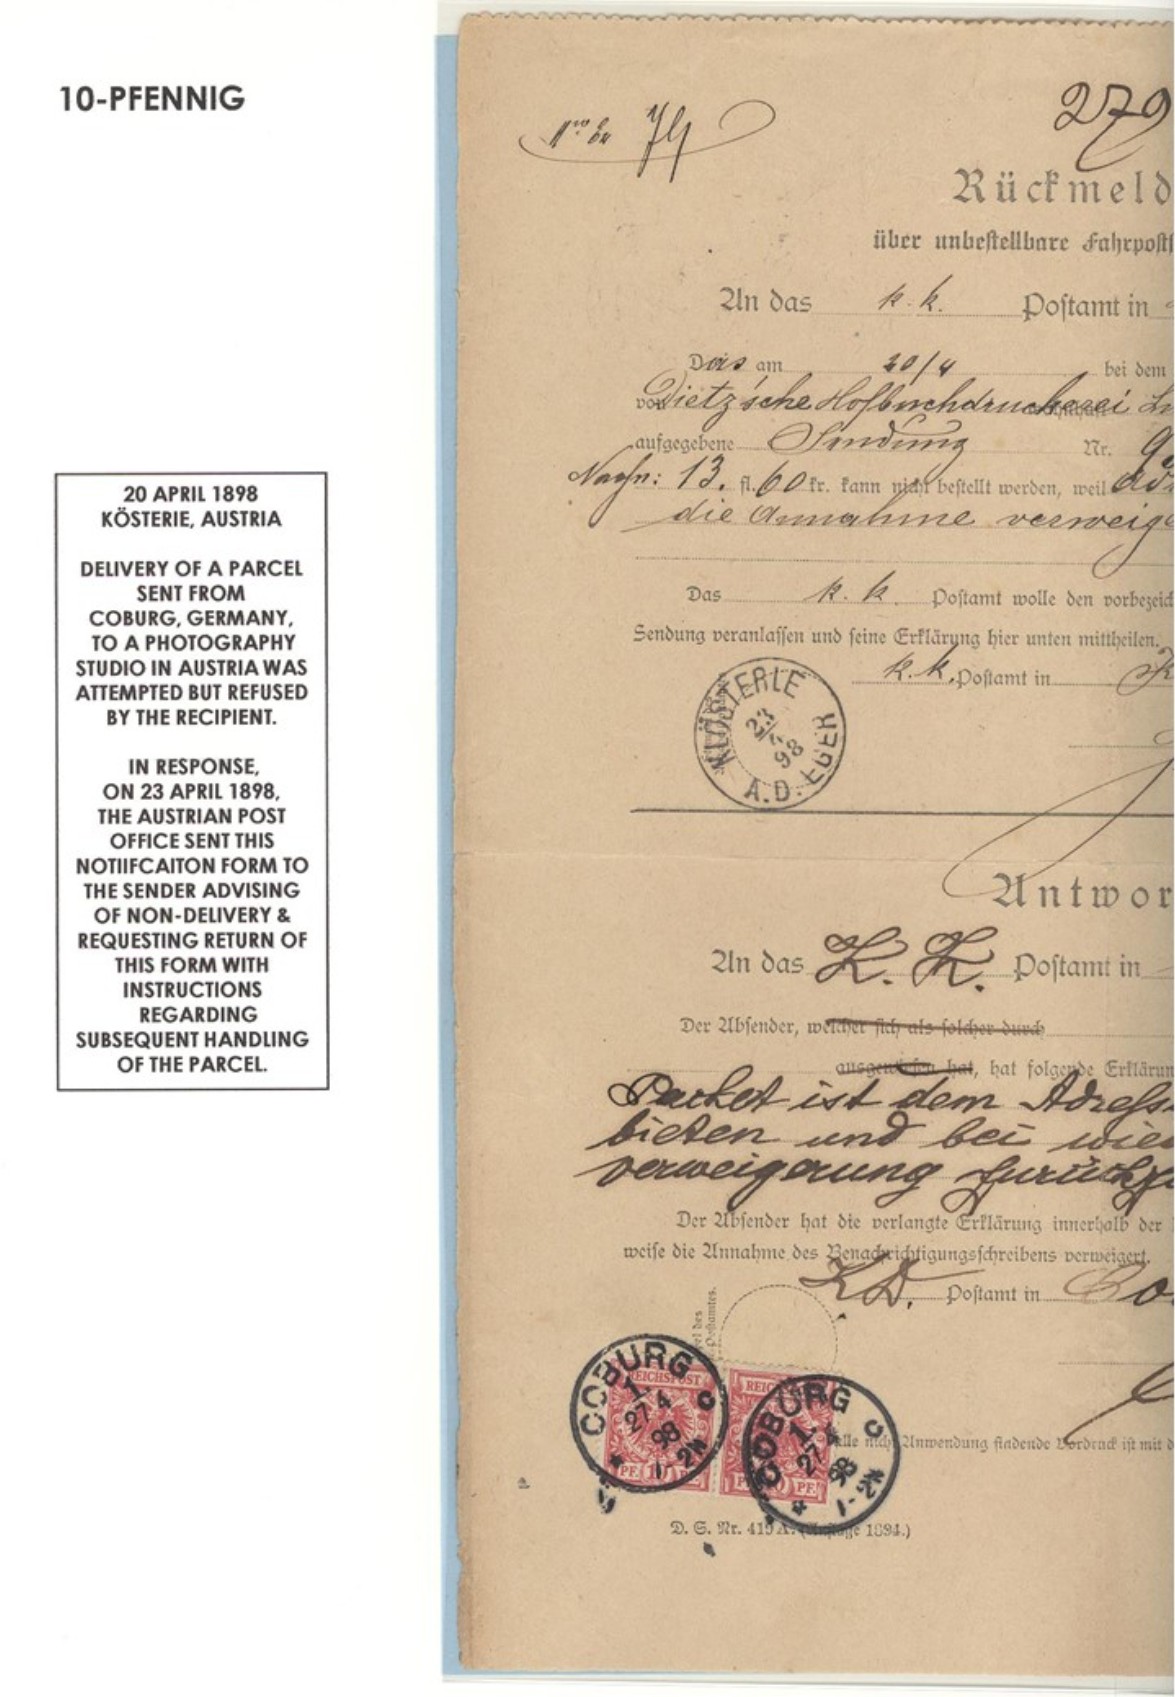 10-PFENNIG
20 APRIL 1898
KÖSTERIE, AUSTRIA
DELIVERY OF A PARCEL
SENT FROM
COBURG, GERMANY,
TO A PHOTOGRAPHY
STUDIO IN AUSTRIA WAS
ATTEMPTED BUT REFUSED
BY THE RECIPIENT.
IN RESPONSE,
ON 23 APRIL 1898,
THE AUSTRIAN POST
OFFICE SENT THIS
NOTIIFCAITON FORM TO
THE SENDER ADVISING
OF NON-DELIVERY &
REQUESTING RETURN OF
THIS FORM WITH
INSTRUCTIONS
REGARDING
SUBSEQUENT HANDLING
OF THE PARCEL.
279
Rückmeld
über unbestellbare Fahrpost
An das k. k. Postamt in
Das am 20/4 bei dem
von Dietz'sche Hofbuchdruckerei
aufgegebene Sendung Nr.
Nachn: 13. fl. 60 kr. kann nicht bestellt werden, weil
die Annahme verweig
Das k. k. Postamt wolle den vorbezeich
Sendung veranlassen und seine Erklärung hier unten mittheilen.
k. k. Postamt in
KLÖSTERLE
23
98
A.D. EGER
Antwor
An das K. K. Postamt in
Der Absender, welcher sich als solcher durch
ausgewiesen hat, hat folgende Erklärun
Packet ist dem Adress
bieten und bei wied
verweigerung zurückzu
Der Absender hat die verlangte Erklärung innerhalb der
weise die Annahme des Benachrichtigungsschreibens verweigert.
K.D. Postamt in Co
Postamtes.
COBURG
1.
27 4
98
1-2N
c
REICHSPOST
PF. 10 PF.
COBURG
1.
27 4
98
1-2N
c
PF.
nicht Anwendung findende Vordruck ist mit d
D. S. Nr. 415 A. (Auflage 1894.)